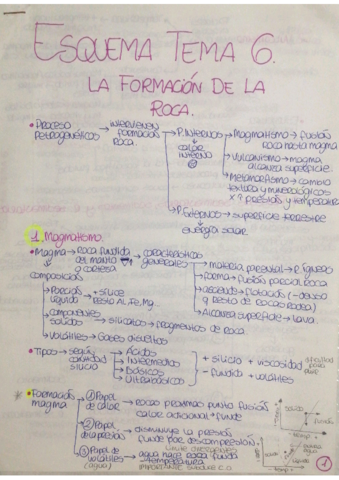 ESQUEMA TEMA 6.
LA FORMACIÓN DE LA
ROCA.
• Proceso petrogenéticos → intervienen formación roca.
→ P. Internos → calor interno
→ Magmatismo → fusión roca hasta magma
→ Vulcanismo → magma alcanza superficie
→ Metamorfismo → cambio textura y mineralógicos x↑ presión y temperatura
→ P. Externos → superficie terrestre
→ energía solar
1. Magmatismo.
• Magma → Roca fundida del manto o corteza → características generales
→ materia prima → r. ígneas
→ forma → fusión parcial roca
→ asciende → flotación (- denso q resto de rocas rodea)
→ Alcanza superficie → lava.
composición
→ Porción líquida → + sílice Resto Al, Fe, Mg...
→ componentes sólidos → silicatos → fragmentos de roca.
→ Volátiles → Gases disueltos
• Tipos → según cantidad silicio
→ Ácidos
→ Intermedios
→ Básicos
→ Ultrabásicos
+ silicio + viscosidad
- fundido + volátiles
* • Formación magma
→ ① Papel de calor → rocas próximas punto fusión calor adicional → funde
→ ② Papel de la presión → disminuye la presión funde por descompresión.
→ ③ Papel de volátiles (agua) → agua hace roca funda ↓ temperatura
IMPORTANTE
1